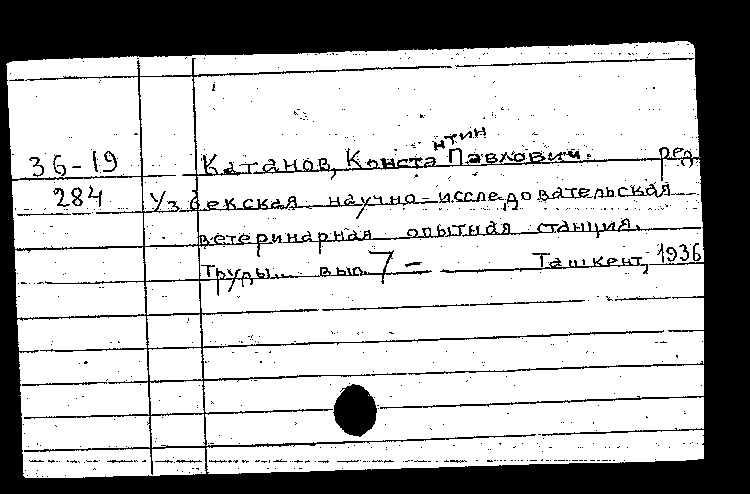 36-19 Катанов, Константин Павлович. ред.
284 Узбекская научно-исследовательская
ветеринарная опытная станция.
Труды. вып. 7 - Ташкент, 1936